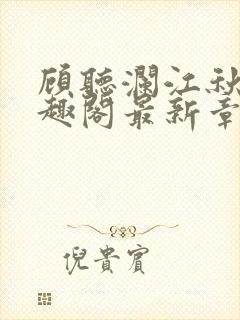 顾聽瀾江秋
趣阁最新章
倪貴賓